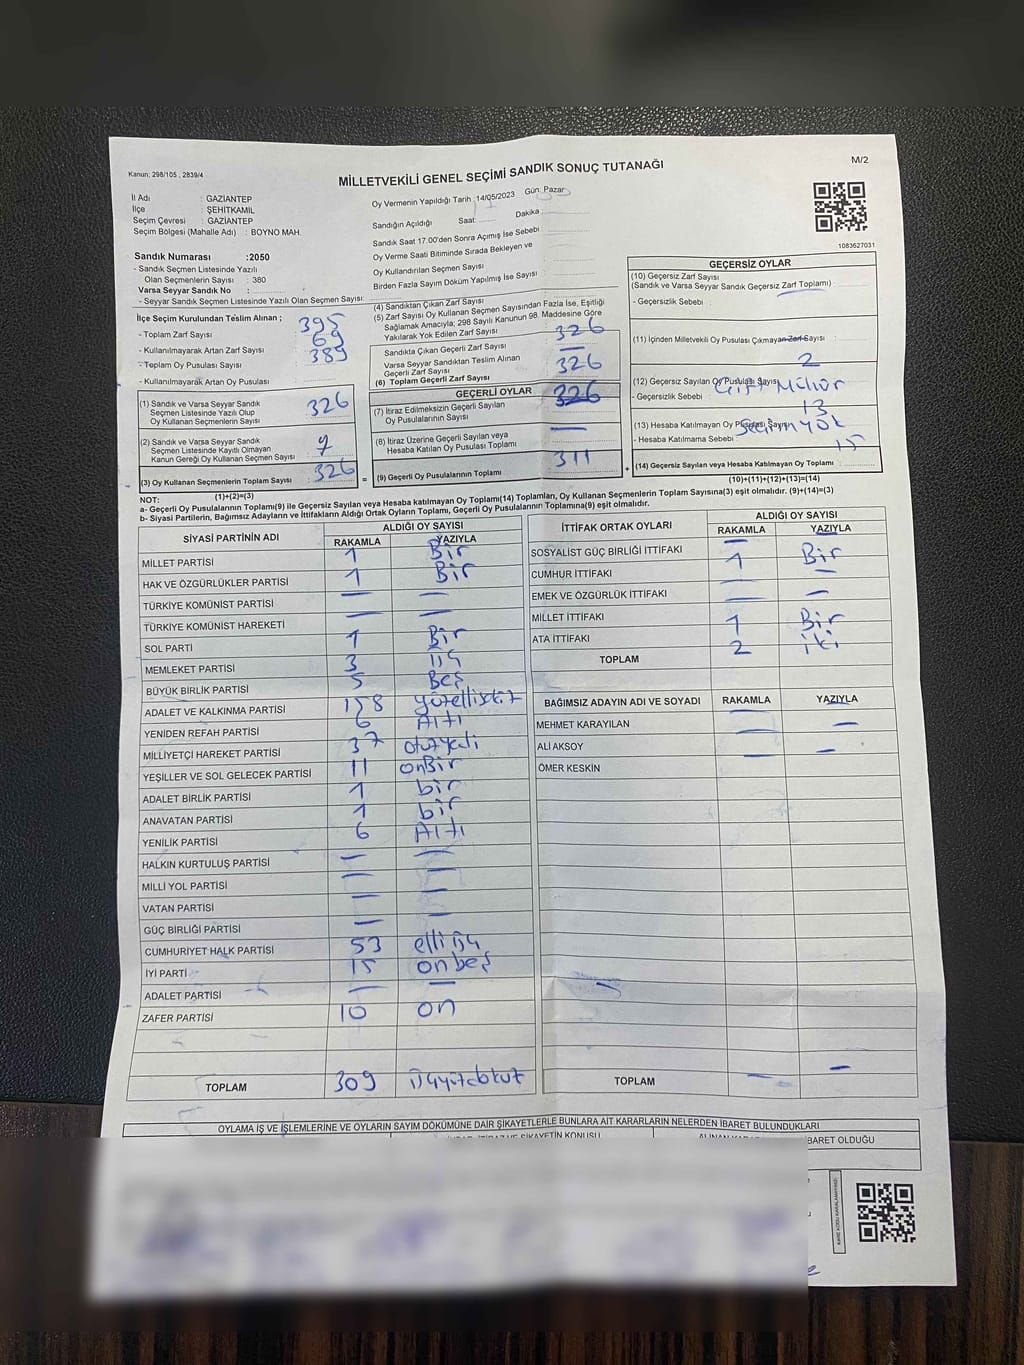 Kanun; 298/105 , 2839/4
M/2
MİLLETVEKİLİ GENEL SEÇİMİ SANDIK SONUÇ TUTANAĞI
İl Adı : GAZİANTEP
İlçe : ŞEHİTKAMİL
Seçim Çevresi : GAZİANTEP
Seçim Bölgesi (Mahalle Adı) : BOYNO MAH.
Oy Vermenin Yapıldığı Tarih : 14/05/2023 Gün: Pazar
Sandığın Açıldığı Saat: Dakika :
Sandık Saat 17.00'den Sonra Açımış İse Sebebi
Oy Verme Saati Bitiminde Sırada Bekleyen ve
Oy Kullandırılan Seçmen Sayısı
Birden Fazla Sayım Döküm Yapılmış İse Sayısı
1083627031
Sandık Numarası :2050
- Sandık Seçmen Listesinde Yazılı
Olan Seçmenlerin Sayısı : 380
Varsa Seyyar Sandık No :
- Seyyar Sandık Seçmen Listesinde Yazılı Olan Seçmen Sayısı:
İlçe Seçim Kurulundan Teslim Alınan ;
- Toplam Zarf Sayısı : 395
- Kullanılmayarak Artan Zarf Sayısı : 69
- Toplam Oy Pusulası Sayısı : 389
- Kullanılmayarak Artan Oy Pusulası
(1) Sandık ve Varsa Seyyar Sandık
Seçmen Listesinde Yazılı Olup
Oy Kullanan Seçmenlerin Sayısı 326
(2) Sandık ve Varsa Seyyar Sandık
Seçmen Listesinde Kayıtlı Olmayan
Kanun Gereği Oy Kullanan Seçmen Sayısı
(3) Oy Kullanan Seçmenlerin Toplam Sayısı 326
(1)+(2)=(3)
(4) Sandıktan Çıkan Zarf Sayısı
(5) Zarf Sayısı Oy Kullanan Seçmen Sayısından Fazla İse, Eşitliği
Sağlamak Amacıyla; 298 Sayılı Kanunun 98. Maddesine Göre
Yakılarak Yok Edilen Zarf Sayısı 326
Sandıkta Çıkan Geçerli Zarf Sayısı —
Varsa Seyyar Sandıktan Teslim Alınan
Geçerli Zarf Sayısı 326
(6) Toplam Geçerli Zarf Sayısı
GEÇERLİ OYLAR 326
(7) İtiraz Edilmeksizin Geçerli Sayılan
Oy Pusulalarının Sayısı
(8) İtiraz Üzerine Geçerli Sayılan veya
Hesaba Katılan Oy Pusulası Toplamı —
= (9) Geçerli Oy Pusulalarının Toplamı 311
GEÇERSİZ OYLAR
(10) Geçersiz Zarf Sayısı
(Sandık ve Varsa Seyyar Sandık Geçersiz Zarf Toplamı) :
- Geçersizlik Sebebi :
(11) İçinden Milletvekili Oy Pusulası Çıkmayan Zarf Sayısı :
2
(12) Geçersiz Sayılan Oy Pusulası Sayısı
- Geçersizlik Sebebi : Çift Mühür
13
(13) Hesaba Katılmayan Oy Pusulası Sayısı
- Hesaba Katılmama Sebebi : Seçim Yok
15
+ (14) Geçersiz Sayılan veya Hesaba Katılmayan Oy Toplamı :
(10)+(11)+(12)+(13)=(14)
NOT:
a- Geçerli Oy Pusulalarının Toplamı(9) ile Geçersiz Sayılan veya Hesaba katılmayan Oy Toplamı(14) Toplamları, Oy Kullanan Seçmenlerin Toplam Sayısına(3) eşit olmalıdır. (9)+(14)=(3)
b- Siyasi Partilerin, Bağımsız Adayların ve İttifakların Aldığı Ortak Oyların Toplamı, Geçerli Oy Pusulalarının Toplamına(9) eşit olmalıdır.
SİYASİ PARTİNİN ADI ALDIĞI OY SAYISI
RAKAMLA YAZIYLA
MİLLET PARTİSİ 1 Bir
HAK VE ÖZGÜRLÜKLER PARTİSİ 1 Bir
TÜRKİYE KOMÜNİST PARTİSİ — —
TÜRKİYE KOMÜNİST HAREKETİ — —
SOL PARTİ 1 Bir
MEMLEKET PARTİSİ 3 üç
BÜYÜK BİRLİK PARTİSİ 5 Beş
ADALET VE KALKINMA PARTİSİ 158
YENİDEN REFAH PARTİSİ 6 Altı
MİLLİYETÇİ HAREKET PARTİSİ 37 otuzyedi
YEŞİLLER VE SOL GELECEK PARTİSİ 11 onBir
ADALET BİRLİK PARTİSİ 1 bir
ANAVATAN PARTİSİ 1 bir
YENİLİK PARTİSİ 6 Altı
HALKIN KURTULUŞ PARTİSİ — —
MİLLİ YOL PARTİSİ — —
VATAN PARTİSİ — —
GÜÇ BİRLİĞİ PARTİSİ — —
CUMHURİYET HALK PARTİSİ 53 elli üç
İYİ PARTİ 15 on beş
ADALET PARTİSİ — —
ZAFER PARTİSİ 10 on
TOPLAM 309
İTTİFAK ORTAK OYLARI ALDIĞI OY SAYISI
RAKAMLA YAZIYLA
SOSYALİST GÜÇ BİRLİĞİ İTTİFAKI — —
CUMHUR İTTİFAKI 1 Bir
EMEK VE ÖZGÜRLÜK İTTİFAKI — —
MİLLET İTTİFAKI — —
ATA İTTİFAKI 1 Bir
TOPLAM 2 iki
BAĞIMSIZ ADAYIN ADI VE SOYADI RAKAMLA YAZIYLA
MEHMET KARAYILAN — —
ALİ AKSOY — —
ÖMER KESKİN —
TOPLAM — —
OYLAMA İŞ VE İŞLEMLERİNE VE OYLARIN SAYIM DÖKÜMÜNE DAİR ŞİKAYETLERLE BUNLARA AİT KARARLARIN NELERDEN İBARET BULUNDUKLARI
KONUSU
BARET OLDUĞU